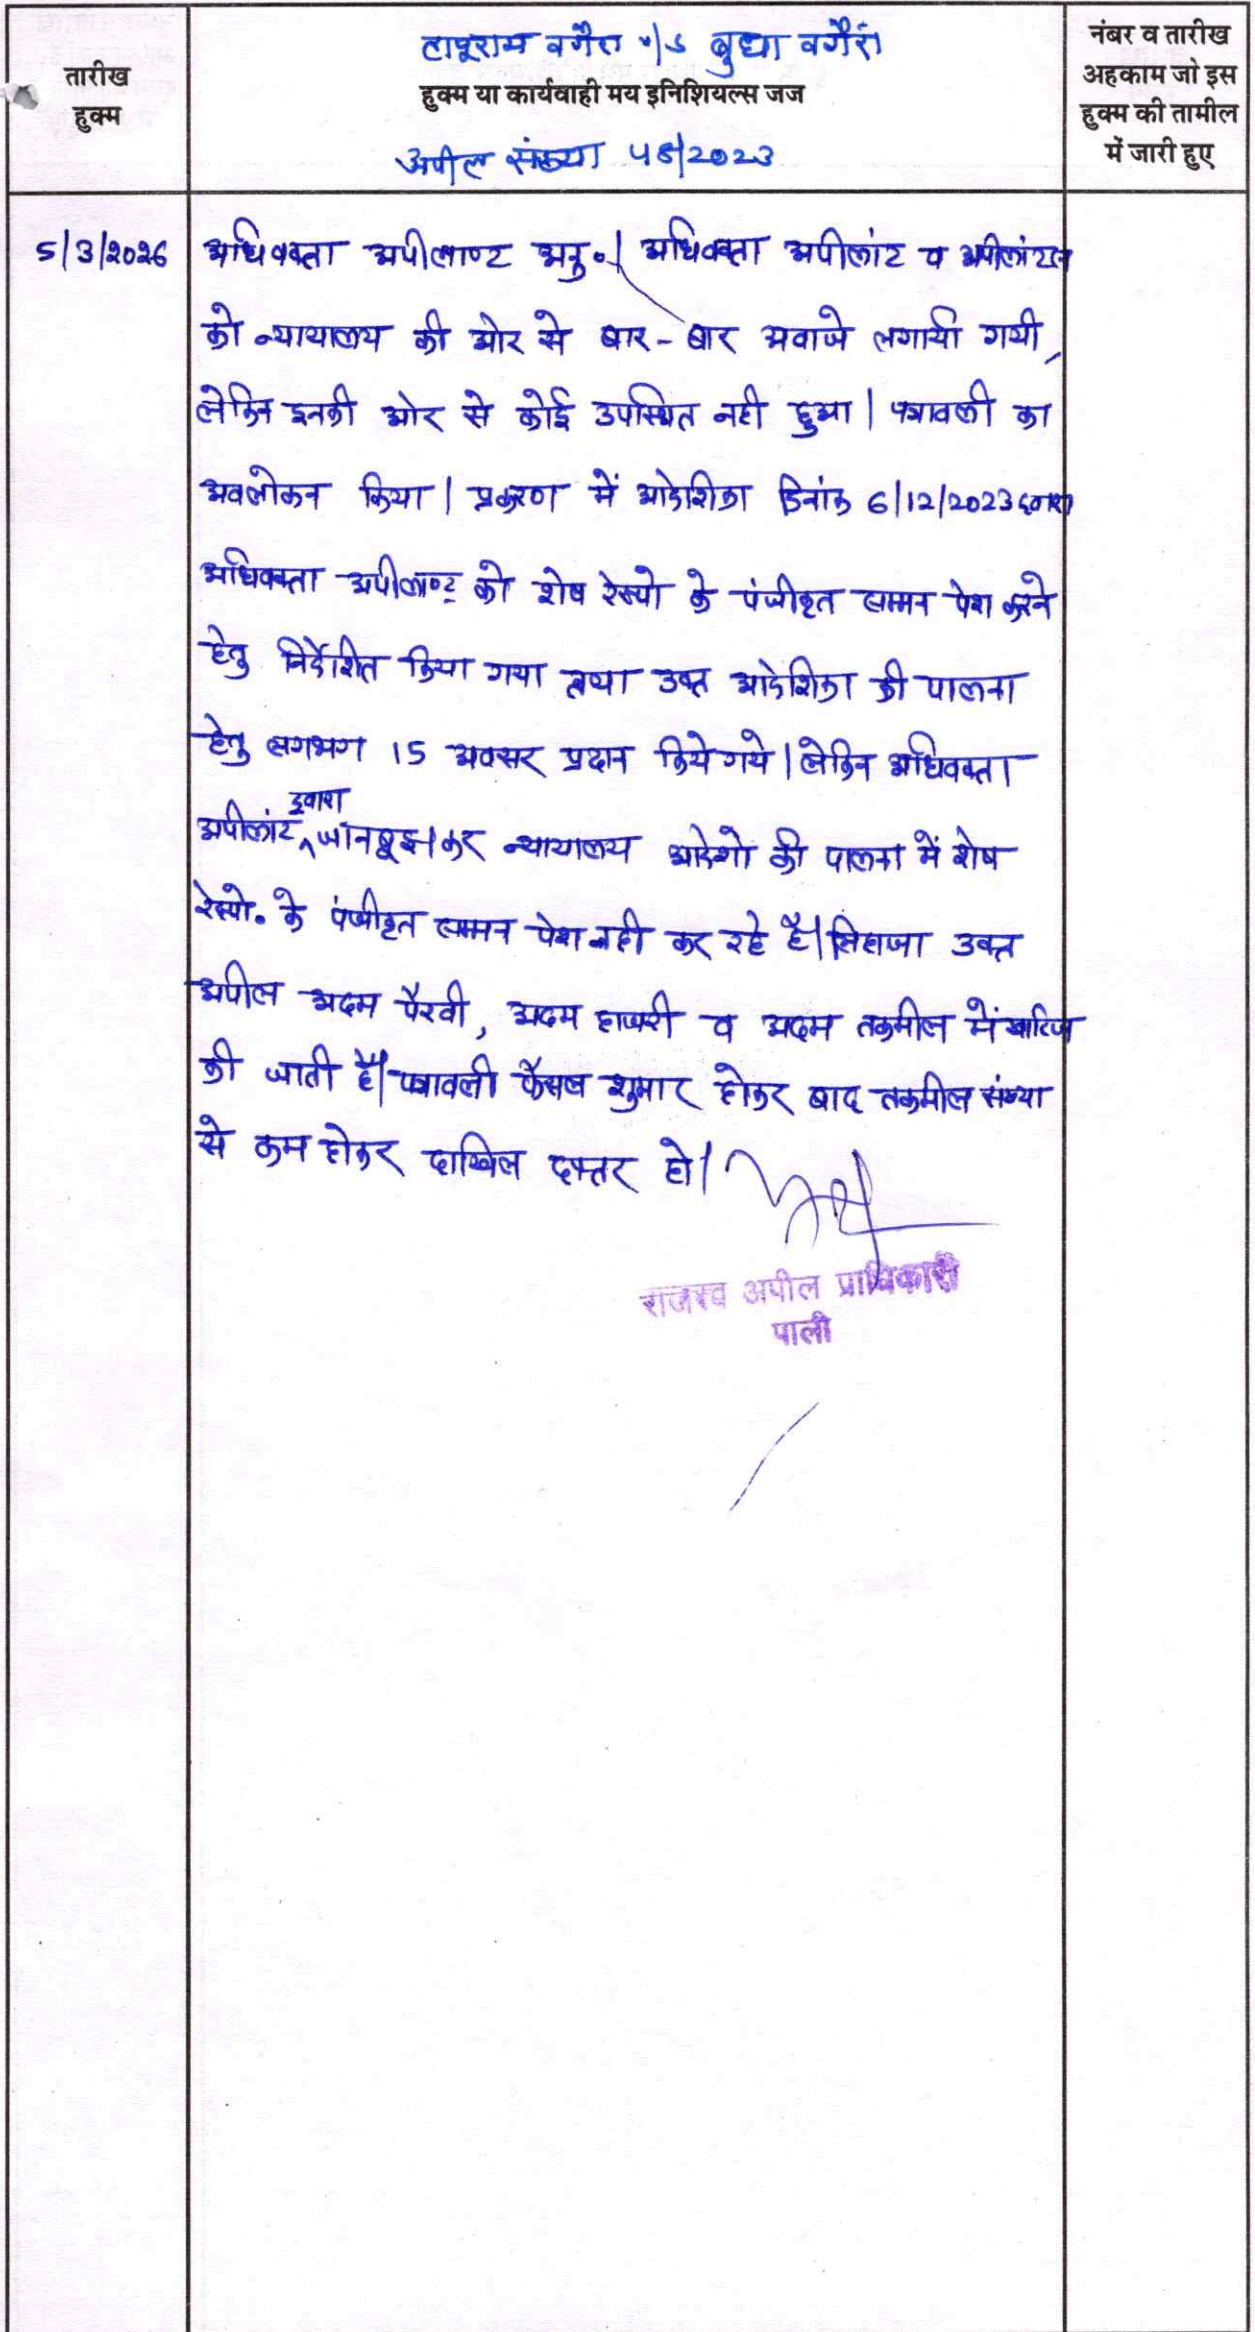 तारीख
हुक्म
टापूराम वगैरा v/s बुधा वगैरा
हुक्म या कार्यवाही मय इनिशियल्स जज
अपील संख्या 45/2023
नंबर व तारीख
अहकाम जो इस
हुक्म की तामील
में जारी हुए
5/3/2026
अधिवक्ता अपीलाण्ट अनु०| अधिवक्ता अपीलांट व अपीलांटान
को न्यायालय की ओर से बार-बार अवाजे लगायी गयी,
लेकिन इनकी ओर से कोई उपस्थित नही हुआ| पत्रावली का
अवलोकन किया| प्रकरण में आदेशिका दिनांक 6/12/2023 द्वारा
अधिवक्ता अपीलाण्ट को शेष रेस्पो के पंजीकृत सम्मन पेश करने
हेतु निर्देशित किया गया तथा उक्त आदेशिका की पालना
हेतु लगभग 15 अवसर प्रदान किये गये| लेकिन अधिवक्ता
अपीलांट द्वारा जानबूझकर न्यायालय आदेशो की पालना में शेष
रेस्पो. के पंजीकृत सम्मन पेश नही कर रहे है| लिहाजा उक्त
अपील अदम पैरवी, अदम हाजरी व अदम तकमील में खारिज
की जाती है| पत्रावली फैसल शुमार होकर बाद तकमील संख्या
से कम होकर दाखिल दफ्तर हो|
राजस्व अपील प्राधिकारी
पाली